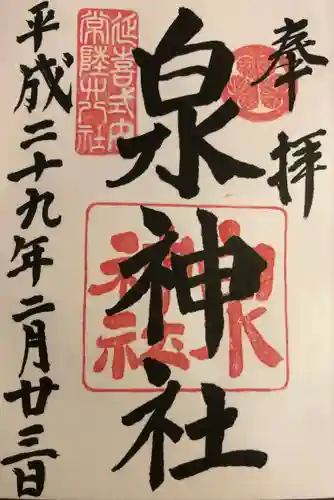 奉拝
泉神社
延喜式内
常陸廿八社
泉神社
平成二十九年二月廿三日